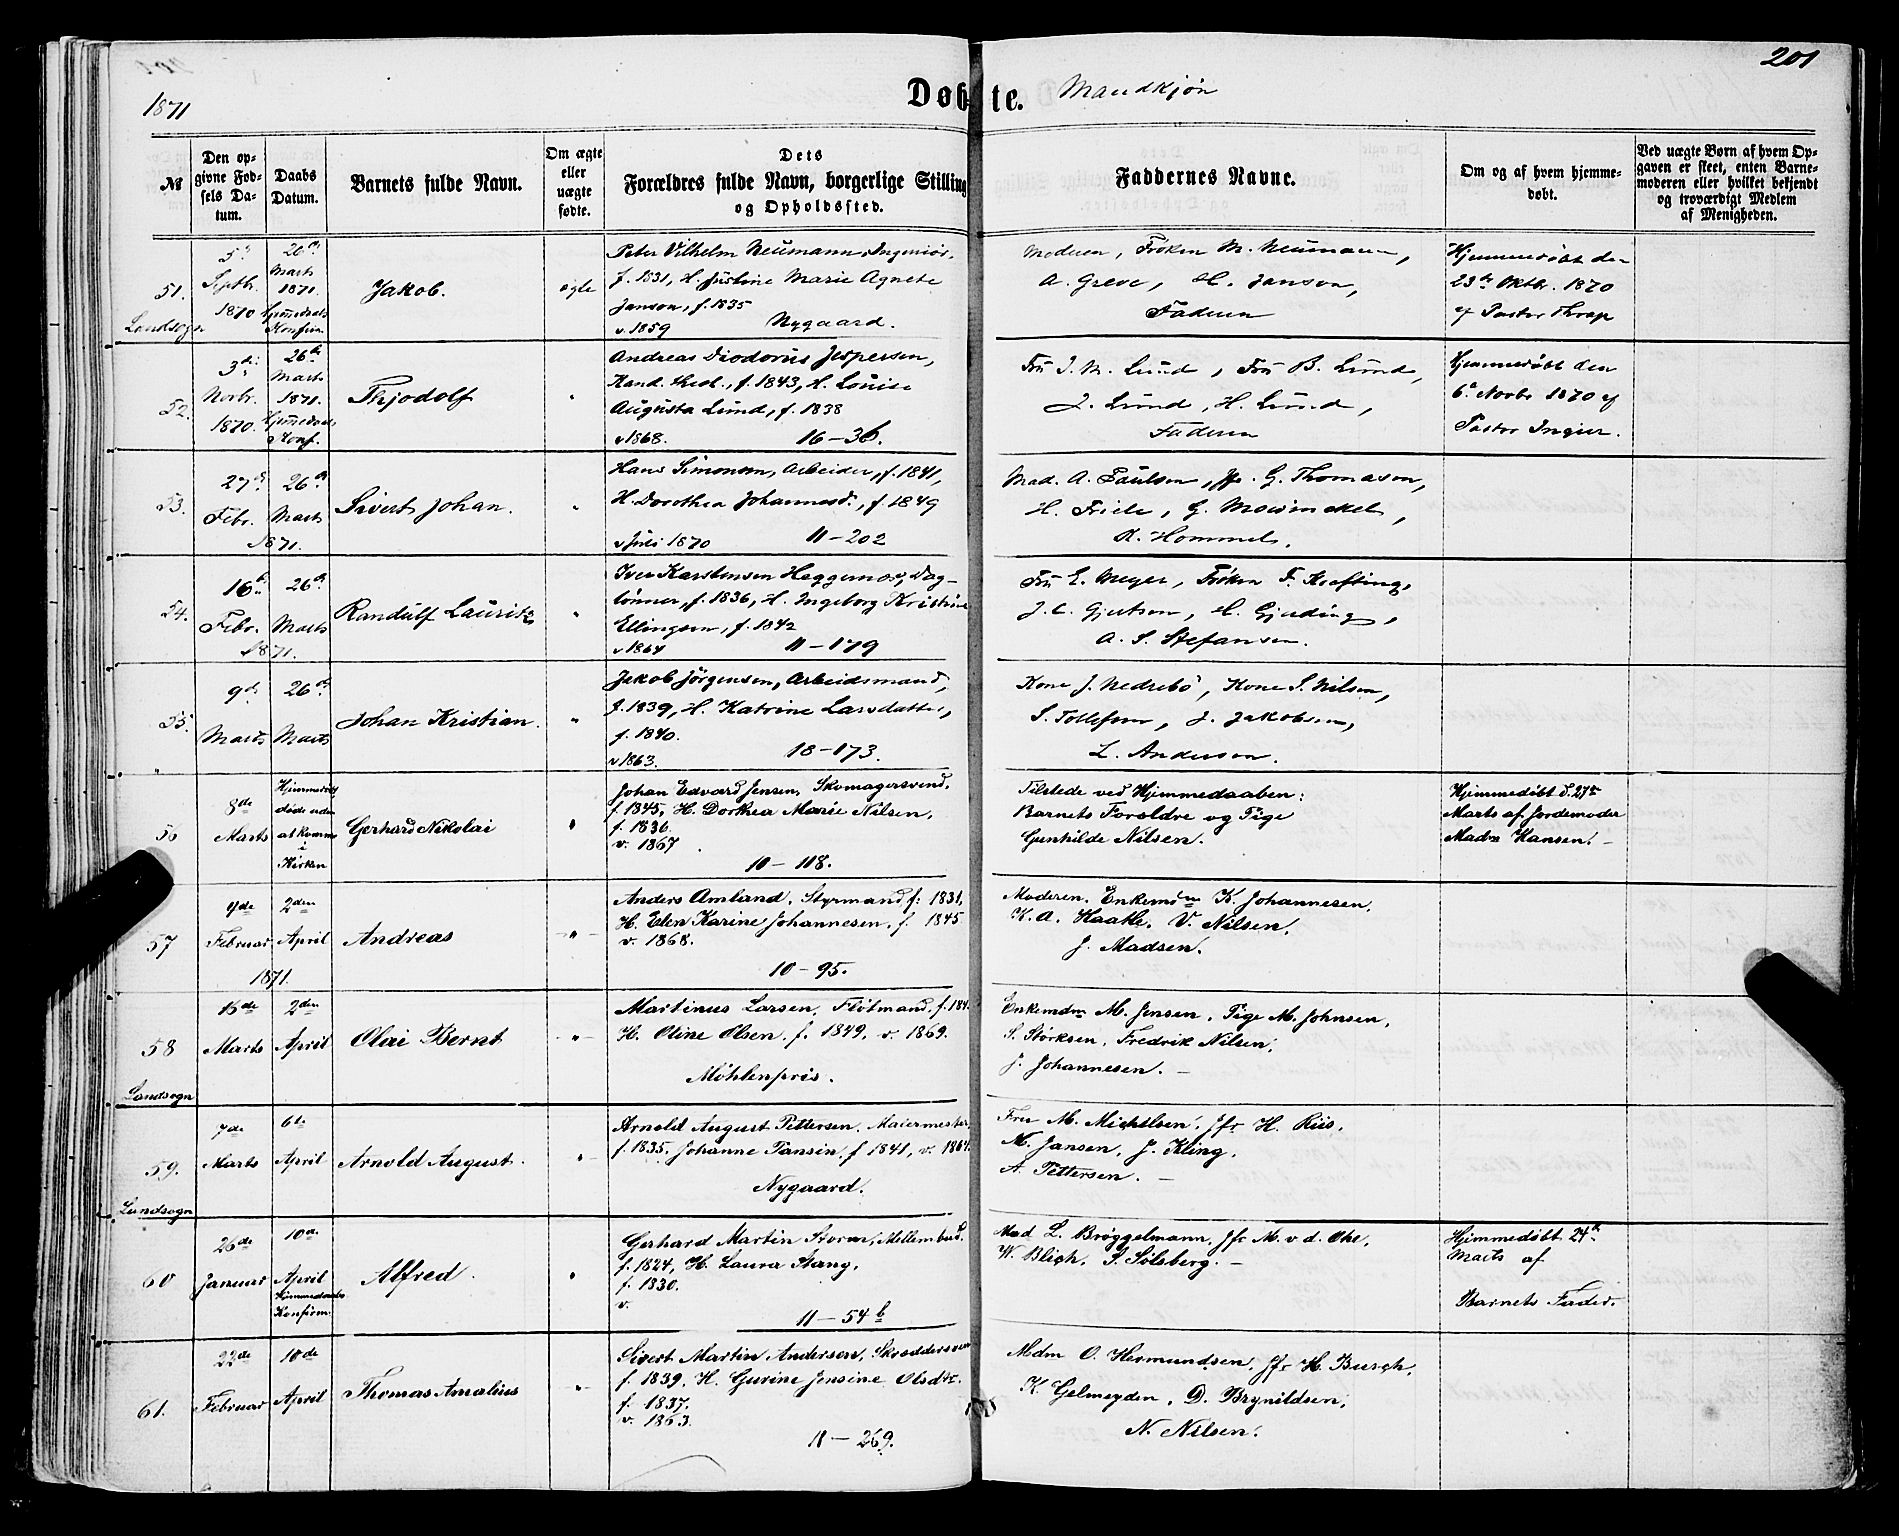 201
1871
Døbte. Mandkjøn
№
Den op-
givne Fød-
sels Da-
tum.
Daabs
Datum.
Barnets fulde Navn.
Om ægte
eller
uægte
fødte.
Dets
Forældres fulde Navn, borgerlige Stilling
og Opholdssted.
Faddernes Navne.
Om og af hvem hjemme-
døbt.
Ved uægte Børn af hvem Op-
gaven er skeet, enten Barne-
moderen eller hvilket bekjendt
og troværdigt Medlem
af Menigheden.
51.
Landsogn
5te
Septbr.
1870
26de
Marts
1871.
Hjemmedaabs
Konfirm
Jakob.
ægte
Peter Vilhelm Neumann, Ingeniør,
f. 1831, H. Justine Marie Agnete
Janson, f. 1835
v. 1859 Nygaard.
Moderen, Frøken M. Neumann,
A. Greve, H. Janson,
Faderen
Hjemmedøbt den
23de Oktbr. 1870
af Pastor Thrap
52.
3die
Novbr.
1870.
26de
Marts
1871.
Hjemmedaabs
Konf.
Thjodolf
"
Andreas Diodorus Jespersen,
Kand. theol., f. 1843, H. Louise
Augusta Lund, f. 1838
v 1868. 16-36.
Fru J. M. Lund, Fru B. Lund,
J. Lund, H. Lund,
Faderen
Hjemmedøbt den
6te Novbr 1870 af
Pastor Ingier.
53.
27de
Febr.
26de
Marts
1871.
Sivert Johan.
"
Hans Simonsen, Arbeider, f. 1841,
H. Dorothea Johannesd., f. 1849
v Juli 1870 11-202
Mad. A. Paulsen, Jfr. G. Thomason,
H. Friele, G. Mowinckel,
R. Hommel.
54.
16de
Febr.
26de
Marts
1871.
Randulf Lauritz
"
Iver Karstensen Heggernæs, Dag-
lønner, f. 1836, H. Ingeborg Kristine
Ellingsen, f. 1842
v 1864 11-179
Fru E. Meyer, Frøken F. Krafting,
J. C. Gjertsen, H. Gjerding,
A. S. Stefansen.
55.
9de
Marts
26de
Marts
Johan Kristian.
"
Jakob Jörgensen, Arbeidsmand,
f. 1839, H. Katrine Larsdatter,
f. 1840.
v 1863. 18-173.
Kone J. Nedrebö, Kone S. Nilsen,
S. Tollefsen, J. Jakobsen,
L. Andersen.
56
8de
Marts
Hjemmedøbt
døde uden
at komme
i
Kirken
Gerhard Nikolai
"
Johan Edvard Jensen, Skomagersvend,
f. 1845, H. Dorthea Marie Nilsen,
f. 1836.
v. 1867
10-118.
Tilstede ved Hjemmedaaben:
Barnets Forældre og Pige
Gunhilde Nilsen.
Hjemmedøbt d. 27de
Marts af Jordemoder
Madm Hansen. -
57
9de
Februar
2den
April
1871.
Andreas
-"-
Anders Amland, Styrmand f: 1831,
H. Elen Karine Johannesen, f. 1845
v. 1868.
10-95.
Moderen. Enkemdm K. Johannesen,
K. A. Haatke, V. Nilsen,
J. Madsen.
58
Landsogn
16de
Marts
2den
April
Olai Bernt
-"-
Martinus Larsen, Fløtmand, f. 184
H. Oline Olsen, f. 1849, v. 1869.
Möhlenpris.
Enkemdm M. Jensen, Pige M. Johnsen,
S. Størksen, Fredrik Nilsen,
J. Johannesen. -
59.
Landsogn
7de
Marts
6te
April
Arnold August.
"
Arnold August Pettersen, Maiermester,
f. 1835. Johanne Tansin, f 1841, v. 1864.
Nygaard.
Fru M. Michelsen, Jfr H. Riis,
M. Jansen, J. Kling,
A. Pettersen. -
60
26de
Januar
10de
April
Hjemmedaabs
Konfirm.
Alfred.
"
Gerhard Martin Storm, Mellembud,
f. 1824, H. Laura Stang,
f. 1830.
v.
11-54b
Mad L. Brøggelmann, Jfr M. v. d. Ohe,
W. Bligh, S. Solsberg. -
Hjemmedøbt 24de
Marts af
Barnets Fader.
61.
22de
Februar
10de
April
Thomas Amalius
"
Sivert Martin Andersen, Skræddersven
f. 1839. H. Gurine Jensine Olsdtr.
f. 1837.
v. 1863.
11-269.
Mdm O. Hermundsen, Jfr H. Burgh,
K. Gelmeyden, D. Brynildsen,
N. Nilsen.